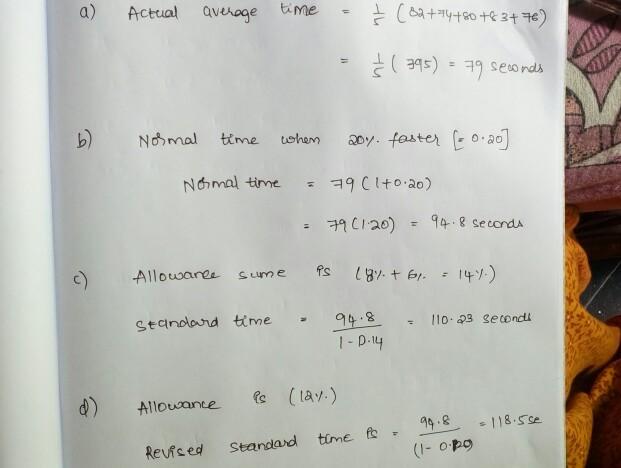 a) Actual average time = 1/5 (82+74+80+83+76)
= 1/5 (395) = 79 seconds
b) Normal time when 20%. faster [= 0.20]
Normal time = 79 (1+0.20)
= 79 (1.20) = 94.8 seconds
c) Allowance sume is (8% + 6% = 14%)
Standard time = 94.8 / 1-0.14 = 110.23 seconds
d) Allowance is (12%)
Revised standard time is = 94.8 / (1- 0.20) = 118.5 se